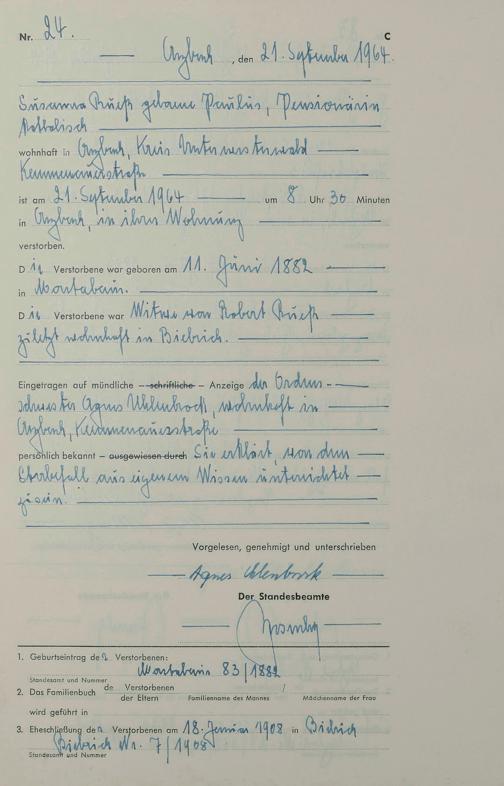 Nr. 24. C
Arzbach, den 21. September 1964.
Susanna Rueß geborne Paulus, Pensionärin
Katholisch
wohnhaft in Arzbach, Kreis Unterwesterwald
Kemmenauerstraße
ist am 21. September 1964 um 8 Uhr 30 Minuten
in Arzbach, in ihrer Wohnung
verstorben.
Die Verstorbene war geboren am 11. Juni 1882
in Montabaur.
Die Verstorbene war Witwe von Robert Rueß
zuletzt wohnhaft in Biebrich.
Eingetragen auf mündliche – schriftliche – Anzeige der Ordens-
schwester Agnes Uhlenbrock, wohnhaft in
Arzbach, Kemmenauerstraße
persönlich bekannt – ausgewiesen durch Sie erklärt, von dem
Sterbefall aus eigenem Wissen unterrichtet
zu sein.
Vorgelesen, genehmigt und unterschrieben
Agnes Uhlenbrock
Der Standesbeamte
1. Geburtseintrag der Verstorbenen:
Montabaur 83/1882
Standesamt und Nummer
2. Das Familienbuch de Verstorbenen /
der Eltern Familienname des Mannes Mädchenname der Frau
wird geführt in
3. Eheschließung der Verstorbenen am 18. Januar 1908 in Biebrich
Biebrich Nr. 7/1908
Standesamt und Nummer